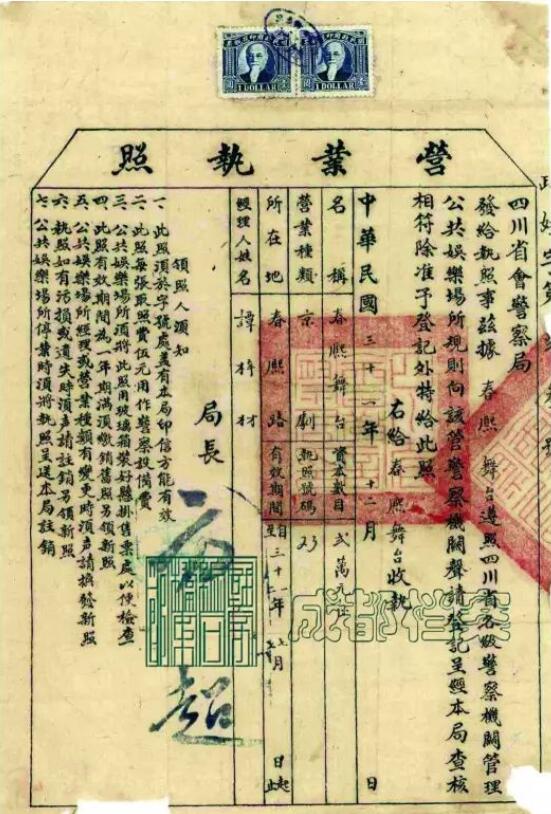 1 DOLLAR
1 DOLLAR
營業執照
四川省會警察局
發給執照事茲據春熙舞台遵照四川省各級警察機關管理
公共娛樂場所規則向該管警察機關聲請登記呈經本局查核
相符除准予登記外特給此照
右給春熙舞台收執
中華民國三十一年十二月 日
名稱 春熙舞台 資本數目 弍萬元
營業種類 京劇 執照號碼 23
所在地 春熙路 有效期間 自三十一年 月 日起 至 止
經理人姓名 譚 材
局長
領照人須知
一、此照須於字號處蓋有本局印信方能有效
二、此照每張取照費伍元用作警察設備費
三、公共娛樂場所須將此照用玻璃箱裝好懸掛售票處以便檢查
四、此照有效期間為一年期滿須繳銷舊照另領新照
五、公共娛樂場所經理或營業種類有變更時須聲請換發新照
六、執照如有污損或遺失時須聲請註銷另領新照
七、公共娛樂場所停業時須將執照呈送本局註銷
成都档案